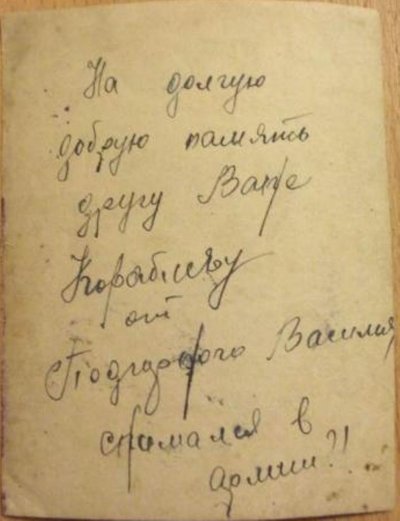 На долгую
добрую память
другу Ване
Кораблеву
от
Подгурского Василия
снимался в
армии?!